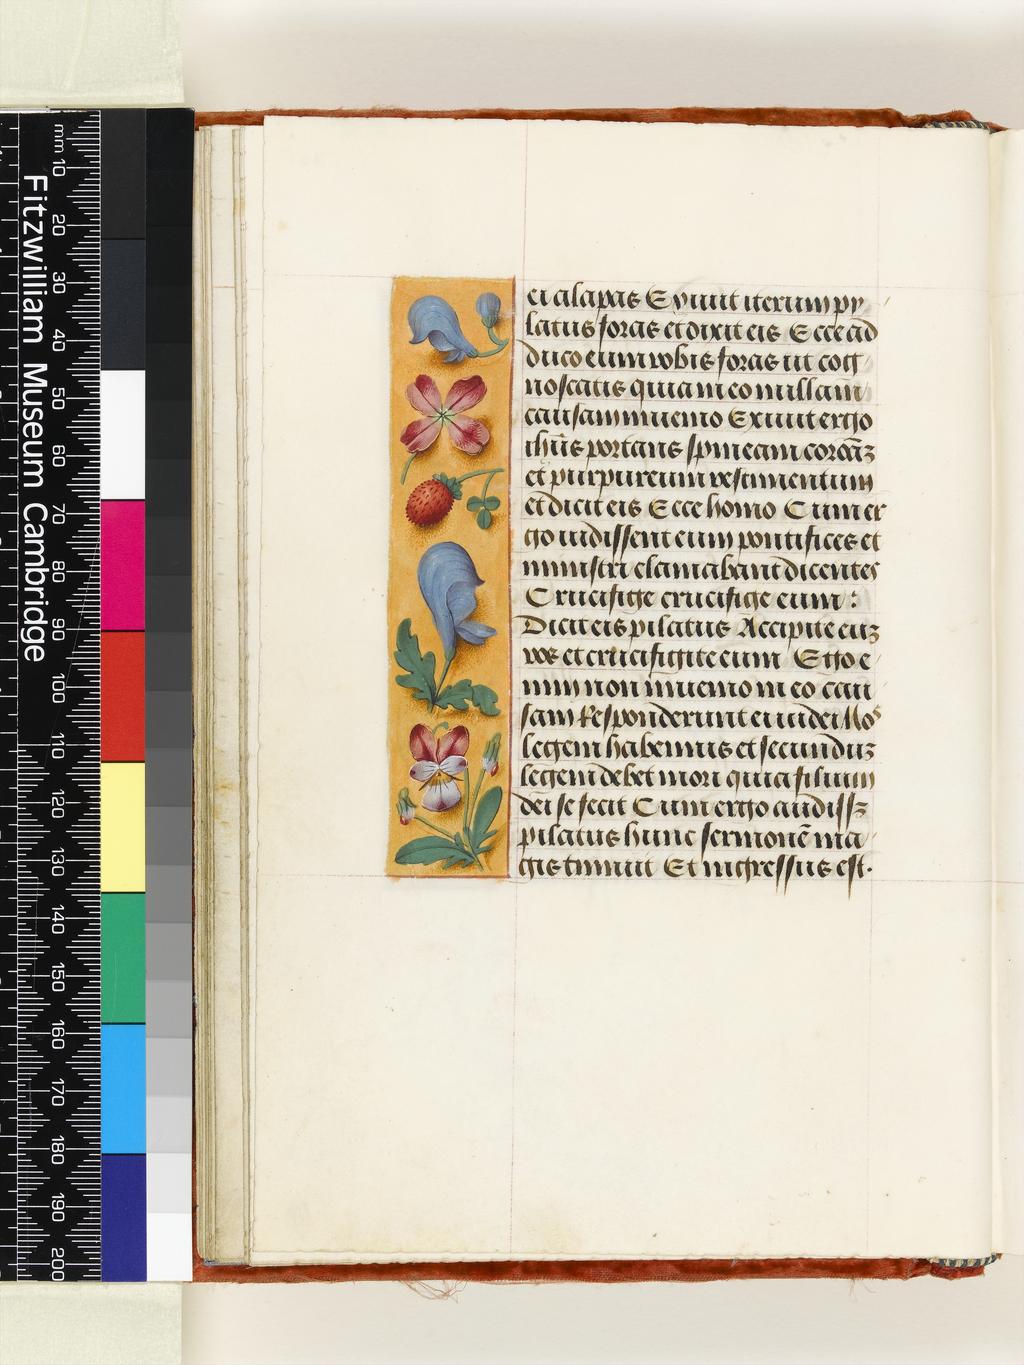 ei alapas Exiuit iterum py
latus foras et dixit eis Ecce ad
duco eum vobis foras ut cog
noscatis quia in eo nullam
causam inuenio Exiuit ergo
ihūs portans spineam coronā
et purpureum vestimentum
et dicit eis Ecce homo Cum er
go uidissent eum pontifices et
ministri clamabant dicentes
Crucifige crucifige eum :
Dicit eis pilatus Accipite eū
vos et crucifigite eum Ego e
nim non inuenio in eo cau
sam Responderunt ei iudei Nos
legem habemus et secundū
legem debet mori quia filium
dei se fecit Cum ergo audiss3
pilatus hunc sermonē ma
gis timuit Et ingressus est.
Fitzwilliam Museum Cambridge
mm 10 20 30 40 50 60 70 80 90 100 110 120 130 140 150 160 170 180 190 200